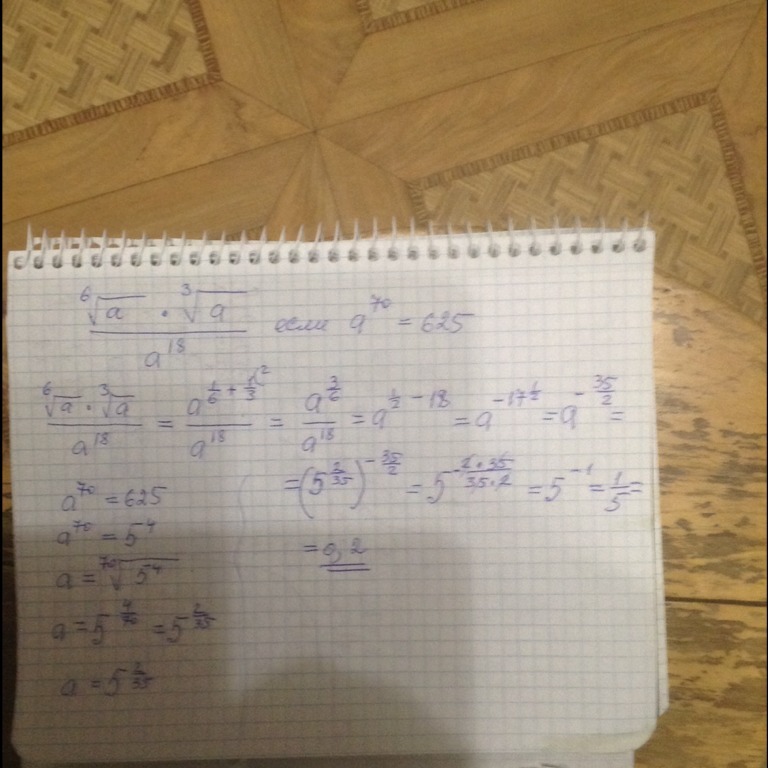 ⁶√a · ³√a / a¹⁸ если a⁷⁰ = 625
⁶√a · ³√a / a¹⁸ = a^(1/6 + 1/3\²) / a¹⁸ = a^(3/6) / a¹⁸ = a^(1/2 - 18) = a^(-17 1/2) = a^(-35/2) =
= (5^(2/35))^(-35/2) = 5^(-2·35/35·2) = 5^(-1) = 1/5 =
= 0,2
a⁷⁰ = 625
a⁷⁰ = 5⁴
a = ⁷⁰√5⁴
a = 5^(4/70) = 5^(2/35)
a = 5^(2/35)